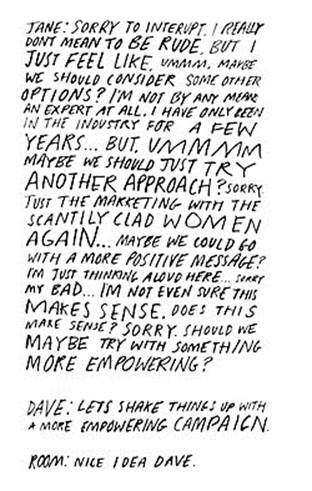 JANE: SORRY TO INTERUPT, I REALLY
DONT MEAN TO BE RUDE, BUT I
JUST FEEL LIKE, UMMM, MAYBE
WE SHOULD CONSIDER SOME OTHER
OPTIONS? I'M NOT BY ANY MEANS
AN EXPERT AT ALL, I HAVE ONLY BEEN
IN THE INDUSTRY FOR A FEW
YEARS... BUT, UMMMM
MAYBE WE SHOULD JUST TRY
ANOTHER APPROACH? SORRY.
JUST THE MARKETING WITH THE
SCANTILY CLAD WOMEN
AGAIN... MAYBE WE COULD GO
WITH A MORE POSITIVE MESSAGE?
I'M JUST THINKING ALOUD HERE... SORRY
MY BAD... I'M NOT EVEN SURE THIS
MAKES SENSE. DOES THIS
MAKE SENSE? SORRY. SHOULD WE
MAYBE TRY WITH SOMETHING
MORE EMPOWERING?
DAVE: LETS SHAKE THINGS UP WITH
A MORE EMPOWERING CAMPAIGN.
ROOM: NICE IDEA DAVE.